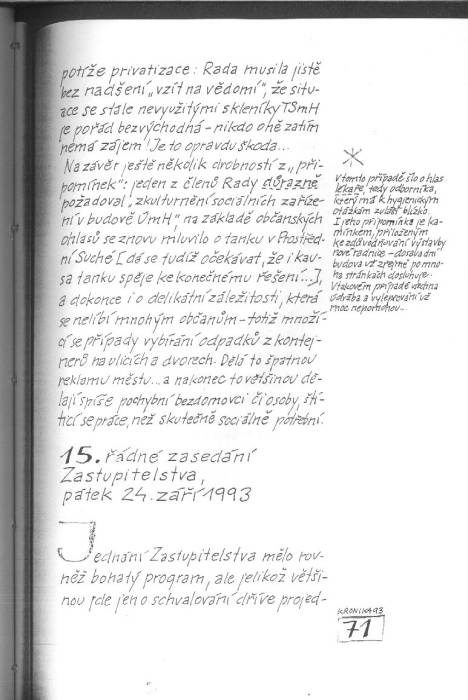 potíže privatizace: Rada musila jistě
bez nadšení „vzít na vědomí“, že situ-
ace se stále nevyužitými skleníky TSmH
je pořád bezvýchodná – nikdo o ně zatím
nemá zájem! Je to opravdu škoda...
Na závěr ještě několik drobností z „při-
pomínek“: jeden z členů Rady důrazně
požadoval „zkulturnění sociálních zaříze-
ní v budově ÚmH“, na základě občanských
ohlasů se znovu mluvilo o tanku v Prostřed-
ní Suché [dá se tudíž očekávat, že i kau-
sa tanku spěje ke konečnému řešení...],
a dokonce i o delikátní záležitosti, která
se nelíbí mnohým občanům – totiž množí-
cí se případy vybírání odpadků z kontej-
nerů na ulicích a dvorech. Dělá to špatnou
reklamu městu... a nakonec to většinou dě-
lají spíše pochybní bezdomovci či osoby, ští-
tící se práce, než skutečně sociálně potřební.
15. řádné zasedání
Zastupitelstva,
pátek 24. září 1993
Jednání Zastupitelstva mělo rov-
něž bohatý program, ale jelikož větši-
nou jde jen o schvalování dříve projed-
*
V tomto případě šlo o hlas
lékaře, tedy odborníka,
který má k hygienickým
otázkám zvlášť blízko.
I jeho připomínka je ka-
mínkem, přiloženým
ke zdůvodňování výstavby
nové radnice – dosavadní
budova už zřejmě po mno-
ha stránkách dosluhuje.
V takovém případě všechna
údržba a vylepšování už
moc nepomohou...
KRONIKA 93
71